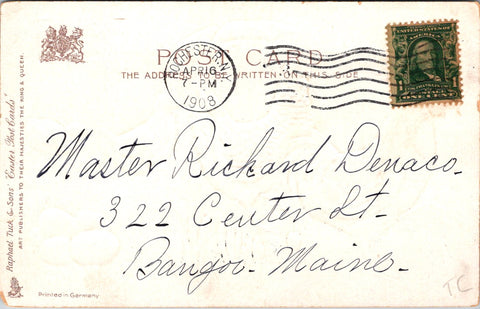 POST CARD
THE ADDRESS TO BE WRITTEN ON THIS SIDE
ROCHESTER, N.Y.
APR 16
7-PM
1908
UNITED STATES OF AMERICA
Master Richard Denaco.
322 Center St.
Bangor. Maine.
Raphael Tuck & Sons' "Easter Post Cards"
ART PUBLISHERS TO THEIR MAJESTIES THE KING & QUEEN.
Printed in Germany
TC